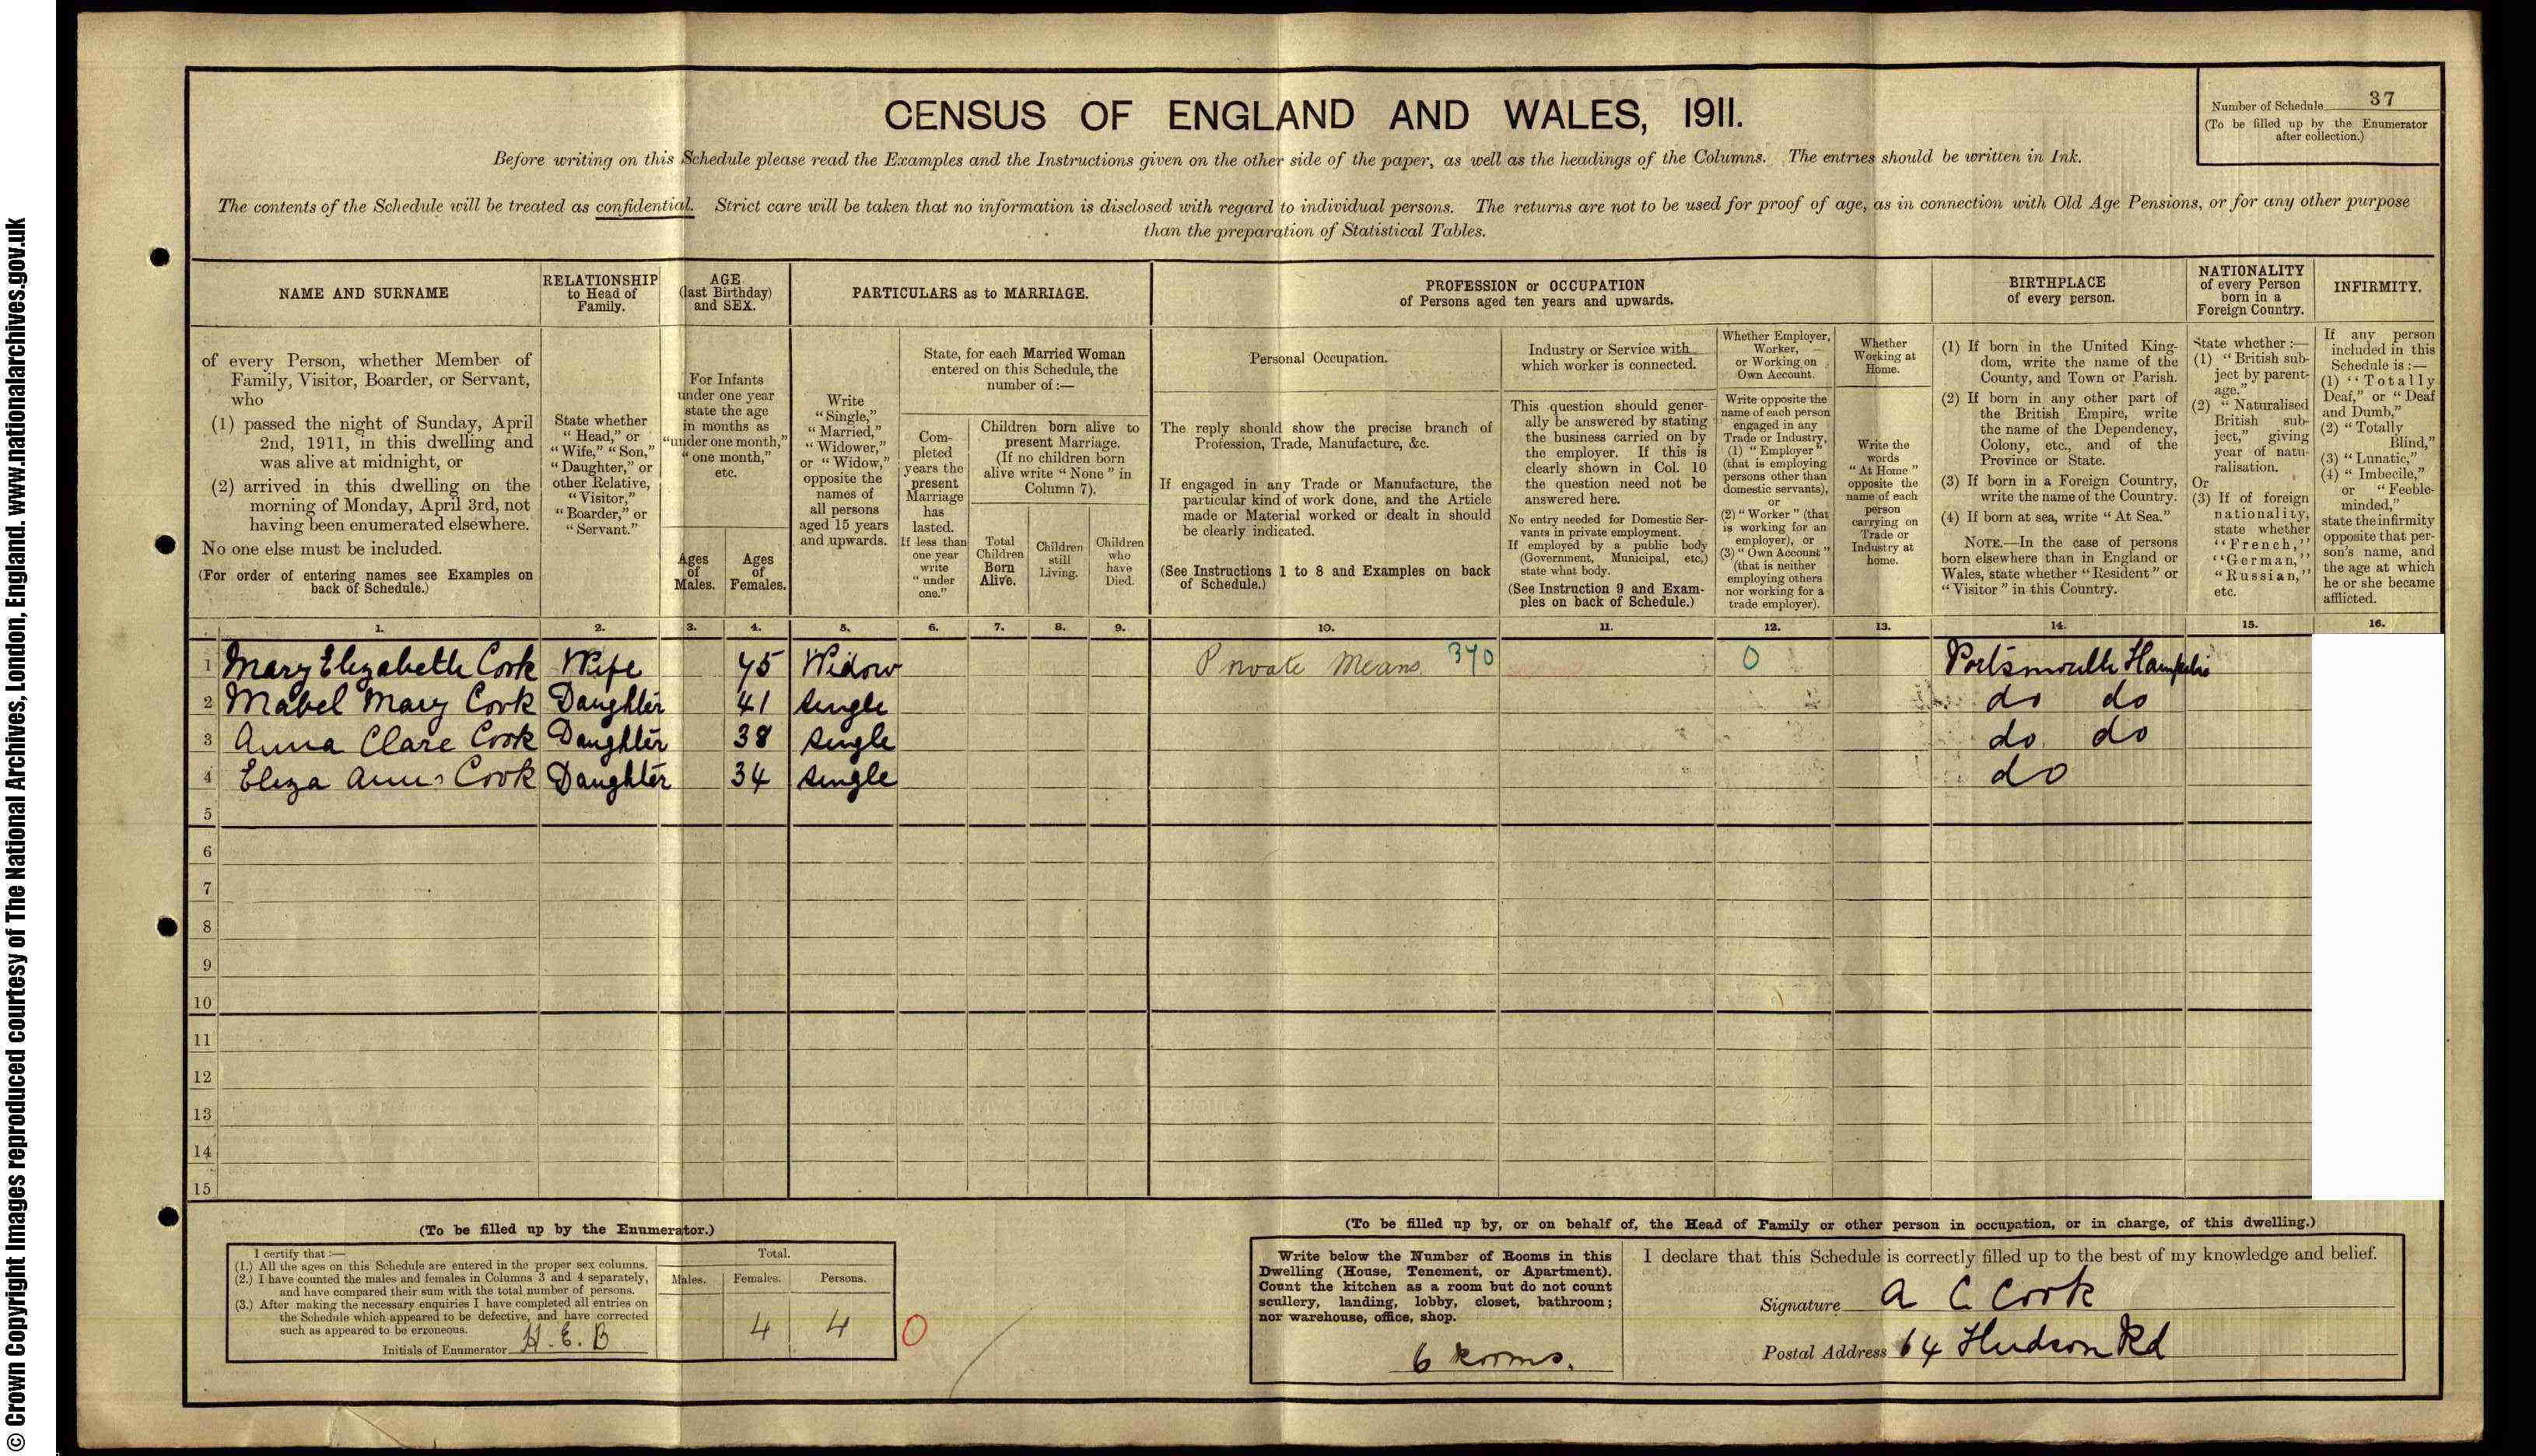 © Crown Copyright Images reproduced courtesy of The National Archives, London, England. www.nationalarchives.gov.uk
CENSUS OF ENGLAND AND WALES, 1911.
Number of Schedule 37
(To be filled up by the Enumerator
after collection.)
Before writing on this Schedule please read the Examples and the Instructions given on the other side of the paper, as well as the headings of the Columns. The entries should be written in Ink.
The contents of the Schedule will be treated as confidential. Strict care will be taken that no information is disclosed with regard to individual persons. The returns are not to be used for proof of age, as in connection with Old Age Pensions, or for any other purpose
than the preparation of Statistical Tables.
NAME AND SURNAME
of every Person, whether Member of
Family, Visitor, Boarder, or Servant,
who
(1) passed the night of Sunday, April
2nd, 1911, in this dwelling and
was alive at midnight, or
(2) arrived in this dwelling on the
morning of Monday, April 3rd, not
having been enumerated elsewhere.
No one else must be included.
(For order of entering names see Examples on
back of Schedule.)
RELATIONSHIP
to Head of
Family.
State whether
"Head," or
"Wife," "Son,"
"Daughter," or
other Relative,
"Visitor,"
"Boarder," or
"Servant."
AGE
(last Birthday)
and SEX.
For Infants
under one year
state the age
in months as
"under one month,"
"one month,"
etc.
Ages
of
Males.
Ages
of
Females.
PARTICULARS as to MARRIAGE.
Write
"Single,"
"Married,"
"Widower,"
or "Widow,"
opposite the
names of
all persons
aged 15 years
and upwards.
State, for each Married Woman
entered on this Schedule, the
number of :—
Com-
pleted
years the
present
Marriage
has
lasted.
If less than
one year
write
"under
one."
Children born alive to
present Marriage.
(If no children born
alive write "None" in
Column 7).
Total
Children
Born
Alive.
Children
still
Living.
Children
who
have
Died.
PROFESSION or OCCUPATION
of Persons aged ten years and upwards.
Personal Occupation.
The reply should show the precise branch of
Profession, Trade, Manufacture, &c.
If engaged in any Trade or Manufacture, the
particular kind of work done, and the Article
made or Material worked or dealt in should
be clearly indicated.
(See Instructions 1 to 8 and Examples on back
of Schedule.)
Industry or Service with
which worker is connected.
This question should gener-
ally be answered by stating
the business carried on by
the employer. If this is
clearly shown in Col. 10
the question need not be
answered here.
No entry needed for Domestic Ser-
vants in private employment.
If employed by a public body
(Government, Municipal, etc.)
state what body.
(See Instruction 9 and Exam-
ples on back of Schedule.)
Whether Employer,
Worker,
or Working on
Own Account.
Write opposite the
name of each person
engaged in any
Trade or Industry,
(1) "Employer"
(that is employing
persons other than
domestic servants),
or
(2) "Worker" (that
is working for an
employer), or
(3) "Own Account"
(that is neither
employing others
nor working for a
trade employer).
Whether
Working at
Home.
Write the
words
"At Home"
opposite the
name of each
person
carrying on
Trade or
Industry at
home.
BIRTHPLACE
of every person.
(1) If born in the United King-
dom, write the name of the
County, and Town or Parish.
(2) If born in any other part of
the British Empire, write
the name of the Dependency,
Colony, etc., and of the
Province or State.
(3) If born in a Foreign Country,
write the name of the Country.
(4) If born at sea, write "At Sea."
NOTE.—In the case of persons
born elsewhere than in England or
Wales, state whether "Resident" or
"Visitor" in this Country.
NATIONALITY
of every Person
born in a
Foreign Country.
State whether :—
(1) "British sub-
ject by parent-
age."
(2) "Naturalised
British sub-
ject," giving
year of natu-
ralisation.
Or
(3) If of foreign
nationality,
state whether
"French,"
"German,"
"Russian,"
etc.
INFIRMITY.
If any person
included in this
Schedule is :—
(1) "Totally
Deaf," or "Deaf
and Dumb,"
(2) "Totally
Blind,"
(3) "Lunatic,"
(4) "Imbecile,"
or "Feeble-
minded,"
state the infirmity
opposite that per-
son's name, and
the age at which
he or she became
afflicted.
1. 2. 3. 4. 5. 6. 7. 8. 9. 10. 11. 12. 13. 14. 15. 16.
1 Mary Elizabeth Cook Wife 75 Widow Private Means 370 0 Portsmouth Hampshire
2 Mabel Mary Cook Daughter 41 Single do do
3 Anna Clare Cook Daughter 38 Single do do
4 Eliza Ann Cook Daughter 34 Single do
5
6
7
8
9
10
11
12
13
14
15
(To be filled up by the Enumerator.)
I certify that :—
(1.) All the ages on this Schedule are entered in the proper sex columns.
(2.) I have counted the males and females in Columns 3 and 4 separately,
and have compared their sum with the total number of persons.
(3.) After making the necessary enquiries I have completed all entries on
the Schedule which appeared to be defective, and have corrected
such as appeared to be erroneous.
Initials of Enumerator H. E. B
Total.
Males. Females. Persons.
4 4 0
(To be filled up by, or on behalf of, the Head of Family or other person in occupation, or in charge, of this dwelling.)
Write below the Number of Rooms in this
Dwelling (House, Tenement, or Apartment).
Count the kitchen as a room but do not count
scullery, landing, lobby, closet, bathroom;
nor warehouse, office, shop.
6 Rooms.
I declare that this Schedule is correctly filled up to the best of my knowledge and belief.
Signature A C Cook
Postal Address 64 Hudson Rd